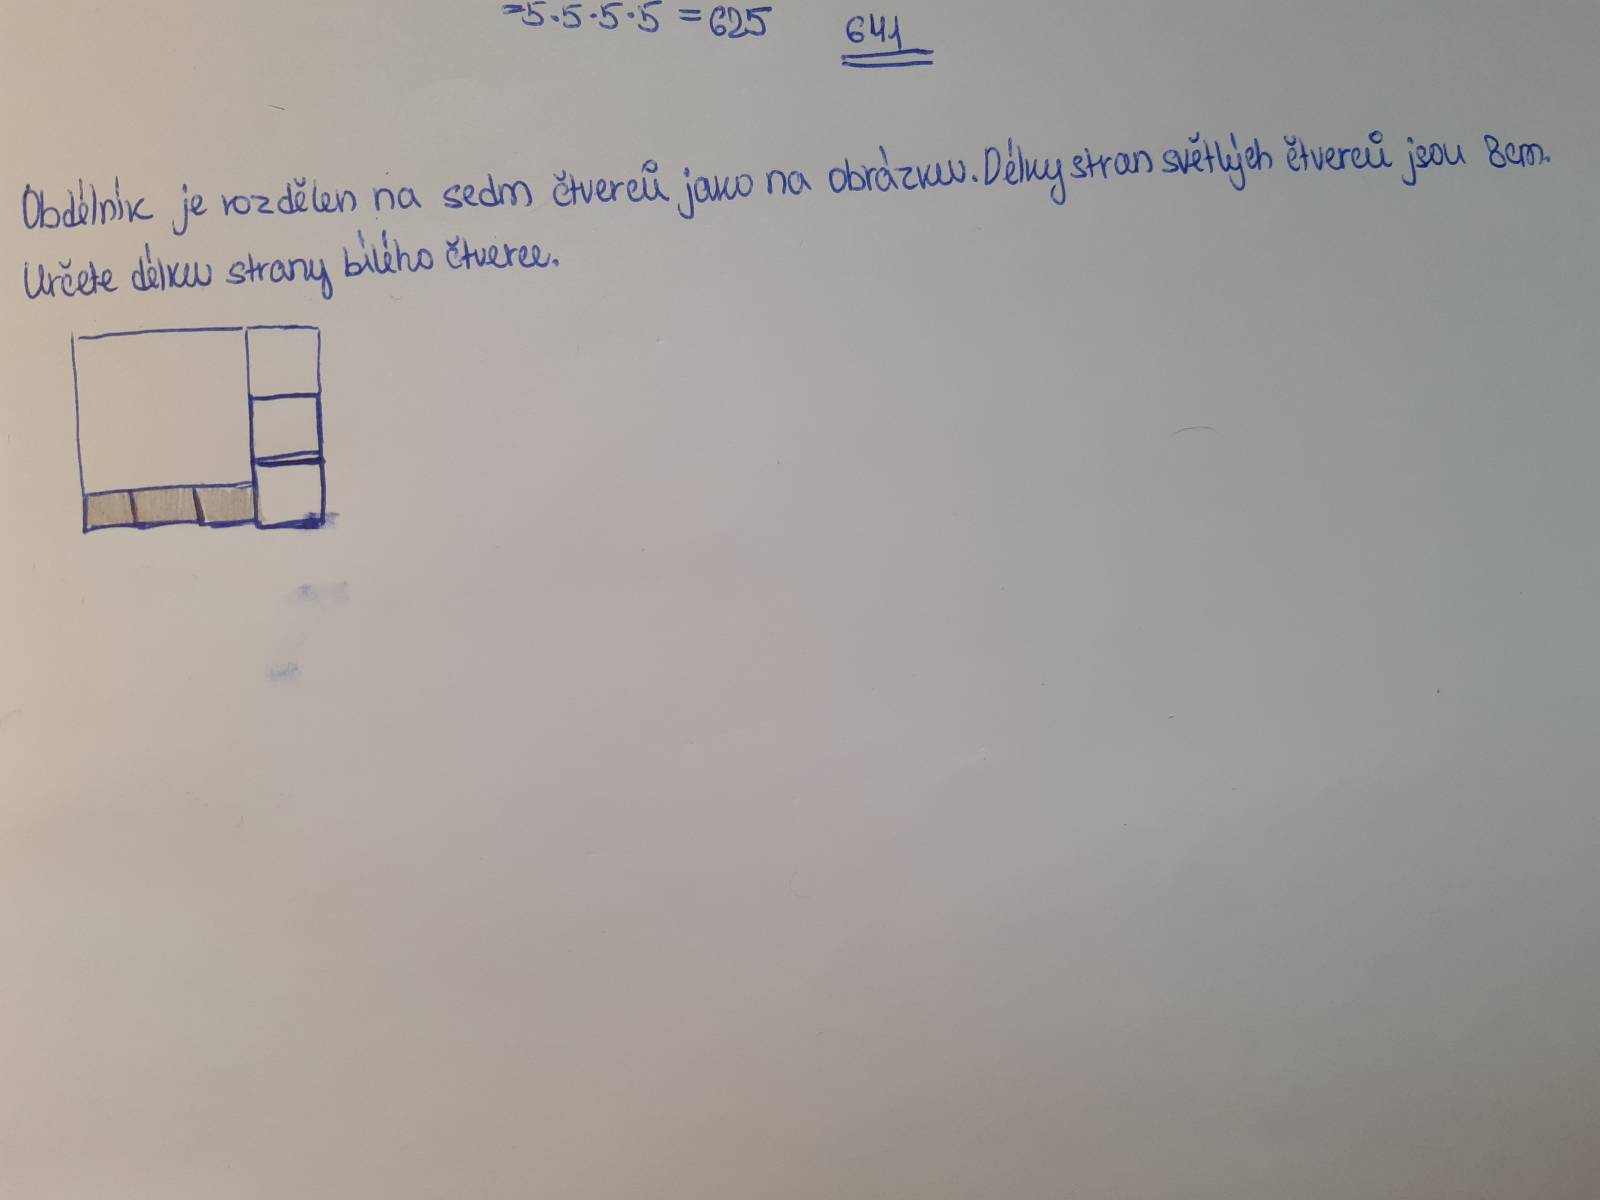 =5·5·5·5 = 625 641
Obdélník je rozdělen na sedm čtverců jako na obrázku. Délky stran světlých čtverců jsou 8cm.
Určete délku strany bílého čtverce.